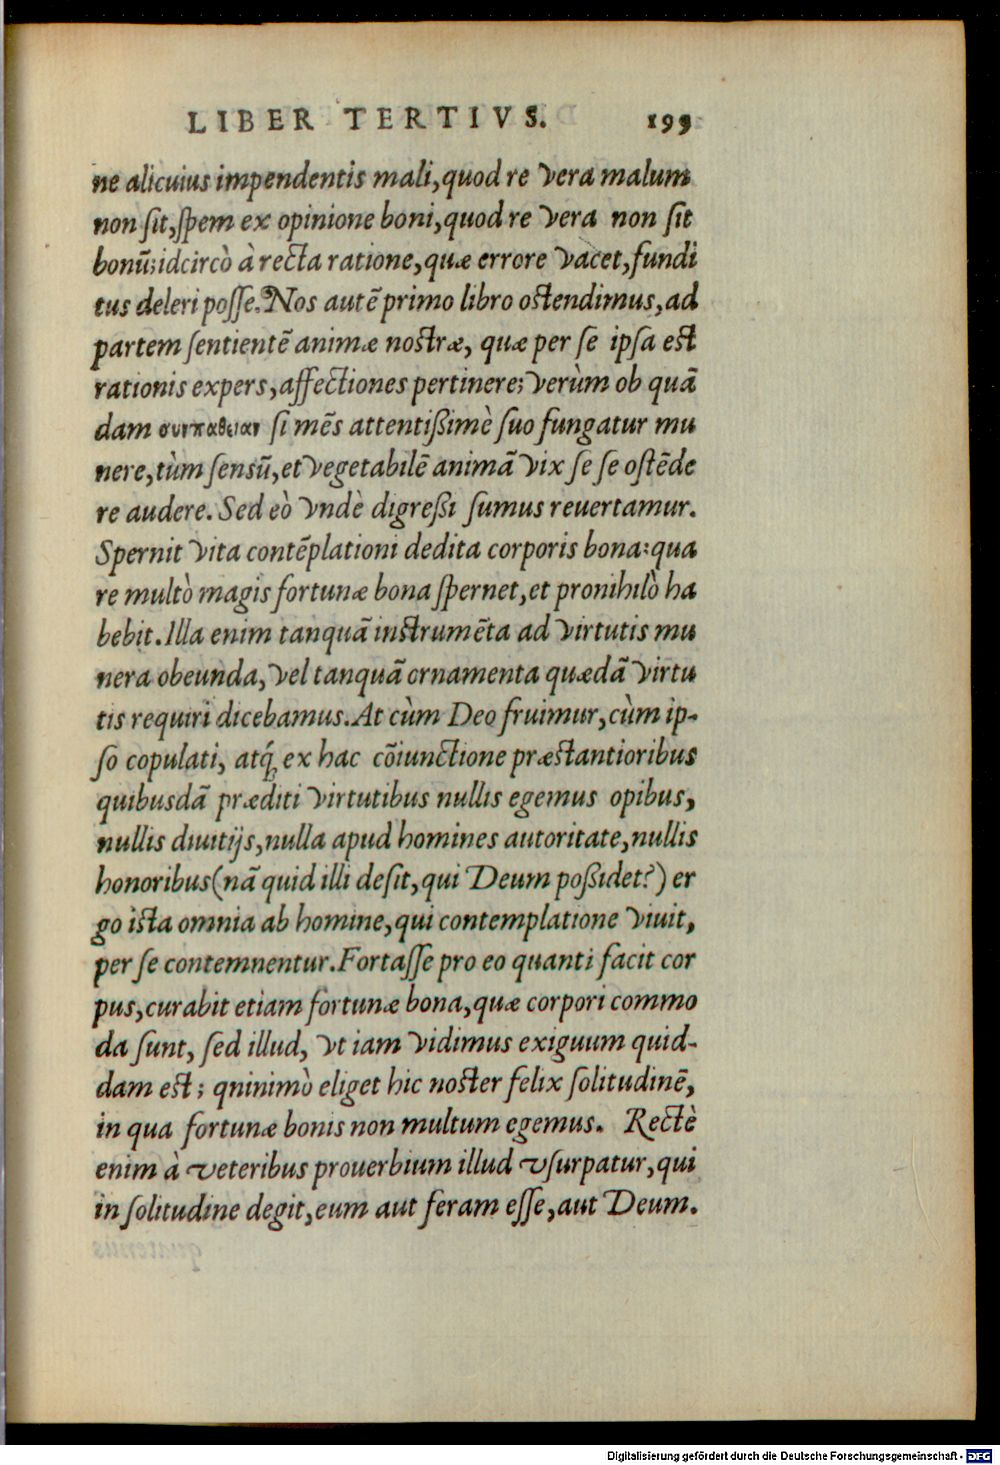 LIBER TERTIVS. 199
ne alicuius impendentis mali,quod re vera malum
non ſit,ſpem ex opinione boni,quod re vera non ſit
bonū;idcircò à recta ratione,quæ errore vacet,fundi
tus deleri poſſe.Nos autē primo libro oſtendimus,ad
partem ſentientē animæ noſtræ, quæ per ſe ipſa eſt
rationis expers,affectiones pertinere;verùm ob quā
dam συμπαθειαν ſi mēs attentißimè ſuo fungatur mu
nere,tùm ſensū,et vegetabilē animā vix ſe ſe oſtēde
re audere. Sed eò vndè digreßi ſumus reuertamur.
Spernit vita contēplationi dedita corporis bona:qua
re multò magis fortunæ bona ſpernet,et pronihilò ha
bebit.Illa enim tanquā inſtrumēta ad virtutis mu
nera obeunda,vel tanquā ornamenta quædā virtu
tis requiri dicebamus.At cùm Deo fruimur,cùm ip-
ſo copulati, atq́; ex hac cōiunctione præſtantioribus
quibusdā præditi virtutibus nullis egemus opibus,
nullis diuitijs,nulla apud homines autoritate,nullis
honoribus(nā quid illi deſit,qui Deum poßidet?) er
go iſta omnia ab homine,qui contemplatione viuit,
per ſe contemnentur.Fortaſſe pro eo quanti facit cor
pus,curabit etiam fortunæ bona,quæ corpori commo
da ſunt, ſed illud, vt iam vidimus exiguum quid-
dam eſt; qninimò eliget hic noſter felix ſolitudinē,
in qua fortunæ bonis non multum egemus. Rectè
enim à veteribus prouerbium illud vſurpatur,qui
in ſolitudine degit,eum aut feram eſſe,aut Deum.
Digitalisierung gefördert durch die Deutsche Forschungsgemeinschaft - DFG